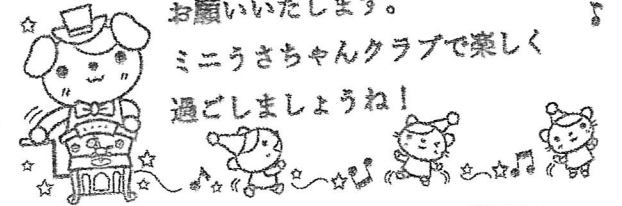 お願いいたします。
ミニうさちゃんクラブで楽しく
過ごしましょうね！